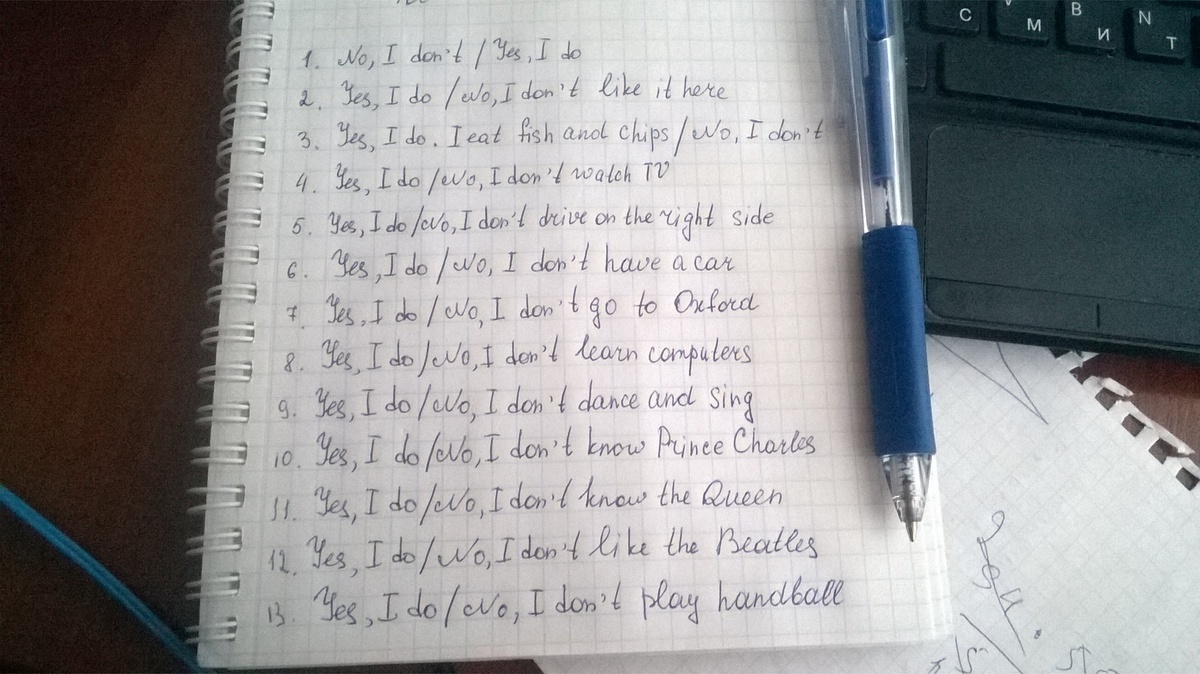 1. No, I don't / Yes, I do
2. Yes, I do / No, I don't like it here
3. Yes, I do. I eat fish and chips / No, I don't
4. Yes, I do / No, I don't watch TV
5. Yes, I do / No, I don't drive on the right side
6. Yes, I do / No, I don't have a car
7. Yes, I do / No, I don't go to Oxford
8. Yes, I do / No, I don't learn computers
9. Yes, I do / No, I don't dance and sing
10. Yes, I do / No, I don't know Prince Charles
11. Yes, I do / No, I don't know the Queen
12. Yes, I do / No, I don't like the Beatles
13. Yes, I do / No, I don't play handball
C M B И N T